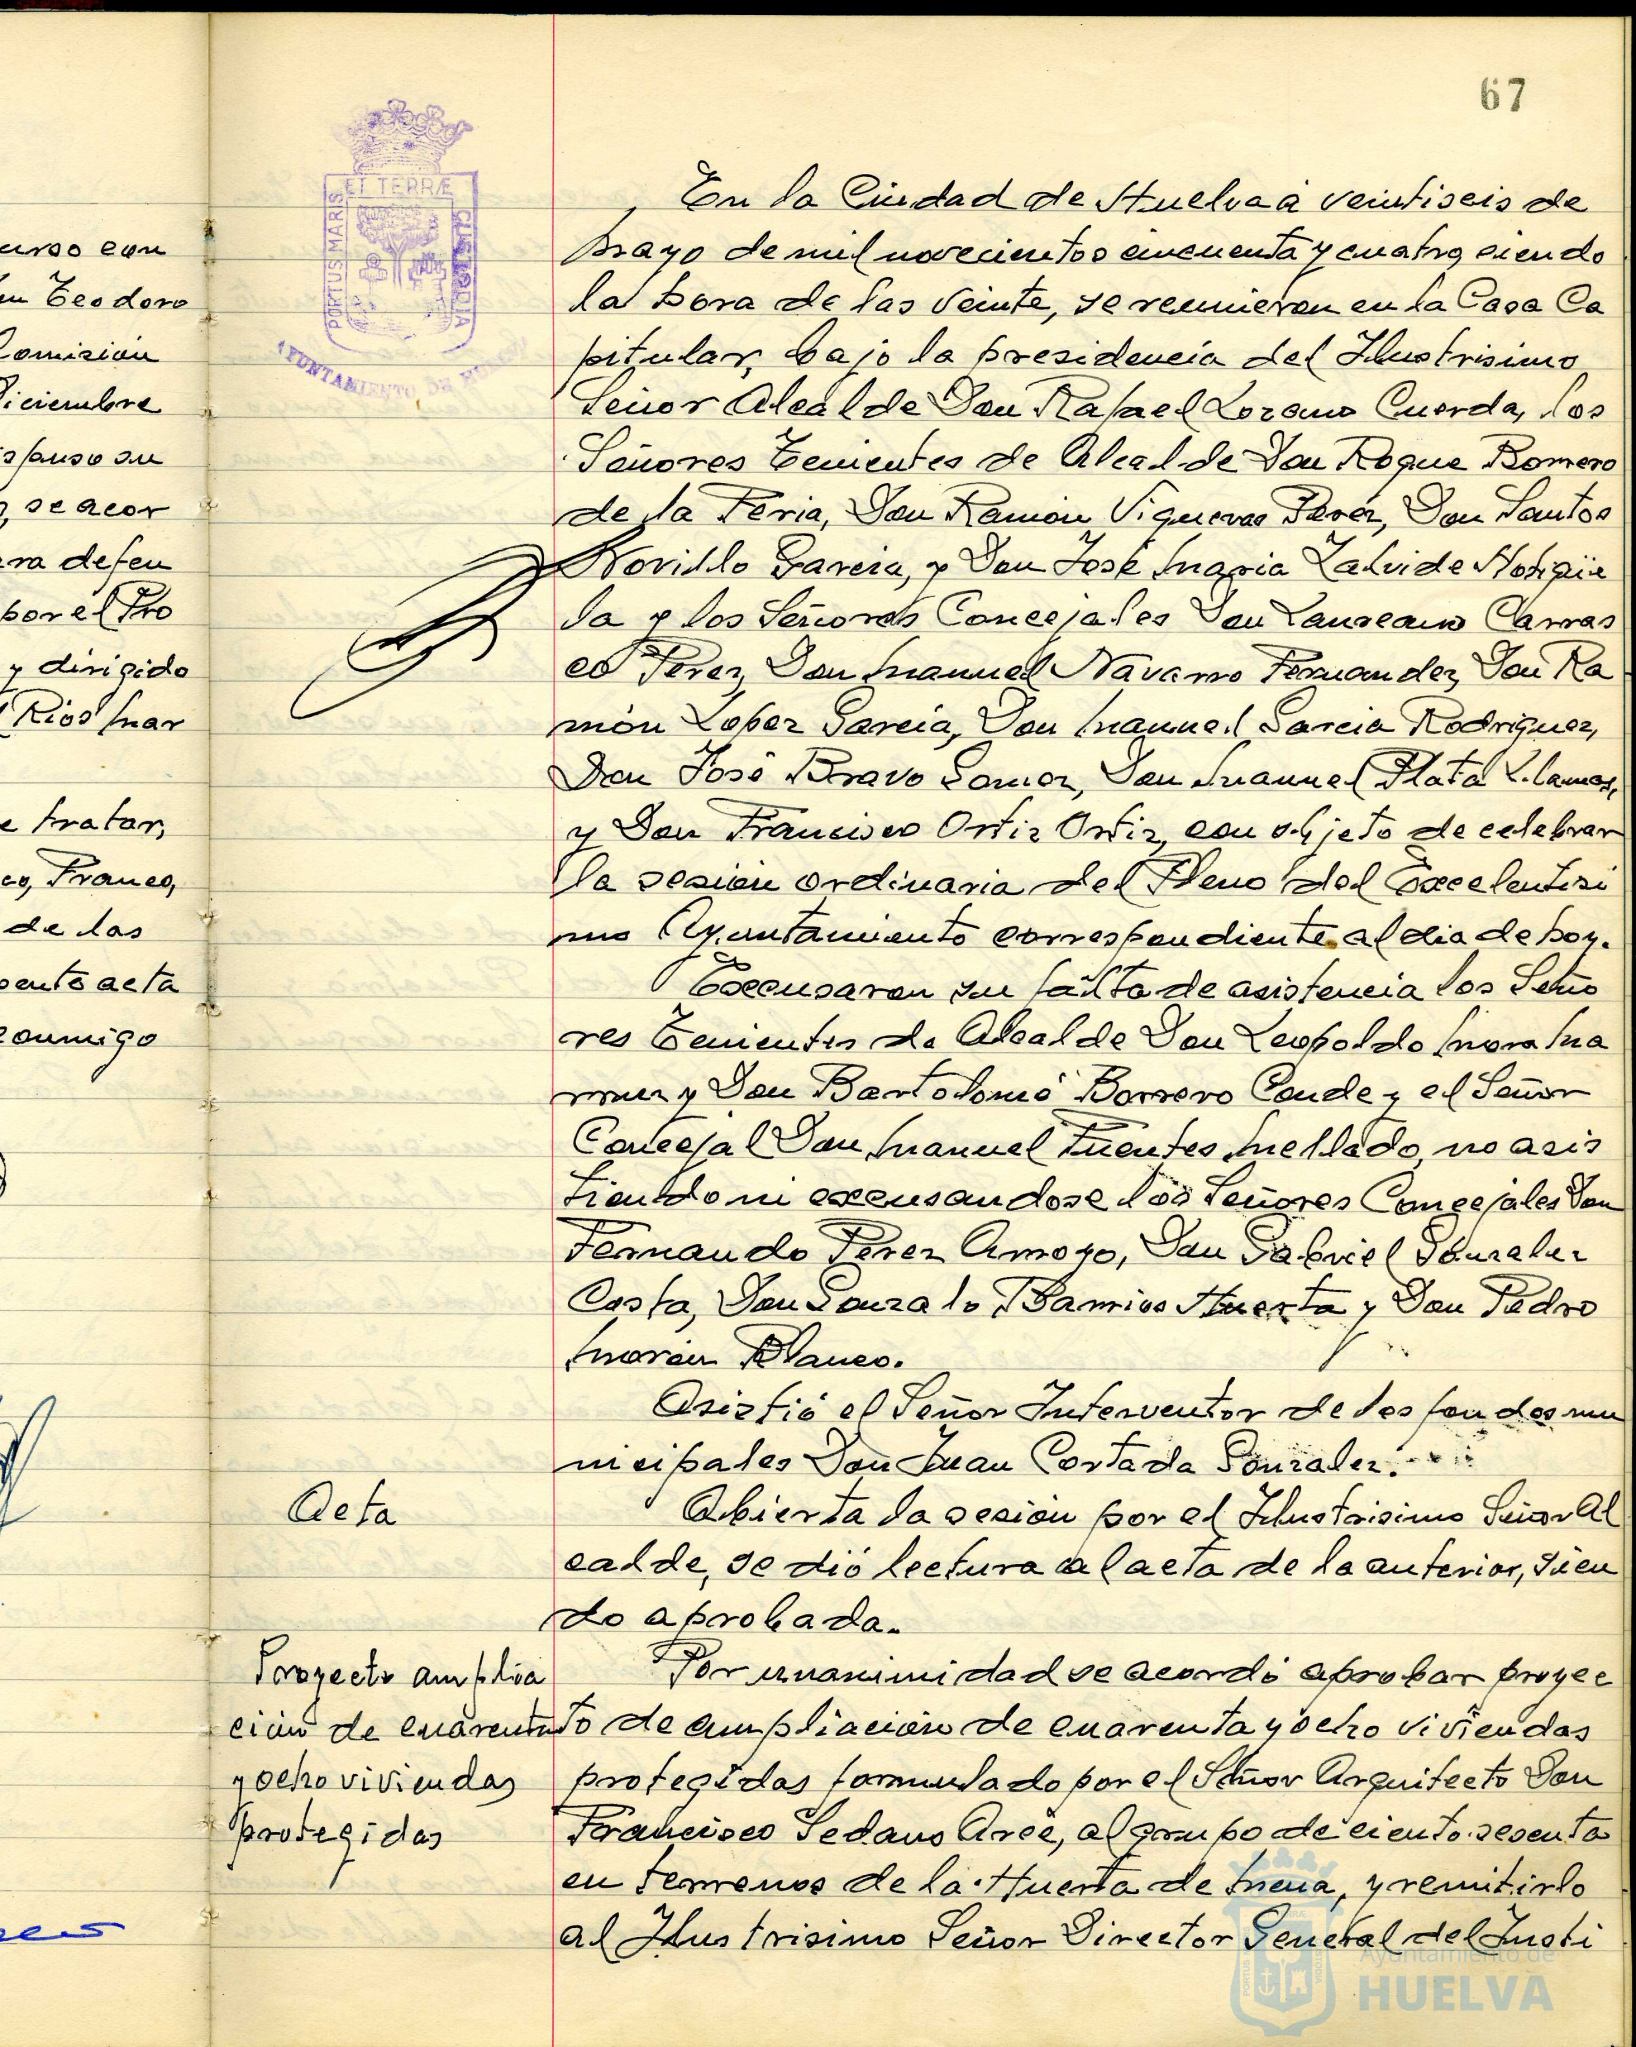 67
urso con
Teodoro
Comisión
Diciembre
ispuso su
se acor
ra defen
por el Pro
y dirigido
Rios Mar
e tratar,
co, Franco,
de las
sente acta
conmigo
ET TERRÆ
PORTUS MARIS
CUSTODIA
AYUNTAMIENTO DE HUELVA
En la Ciudad de Huelva a veintiseis de
Mayo de mil novecientos cincuenta y cuatro, siendo
la hora de las veinte, se reunieron en la Casa Ca
pitular, bajo la presidencia del Ilustrisimo
Señor Alcalde Don Rafael Lozano Cuerda, los
Señores Tenientes de Alcalde Don Roque Romero
de la Feria, Don Ramón Vigueras Perez, Don Santos
Novillo Garcia, y Don José Maria Zalvide Hotgüe
la y los Señores Concejales Don Laureano Carras
co Perez, Don Manuel Navarro Fernandez, Don Ra
món Lopez Garcia, Don Manuel Garcia Rodriguez,
Don José Bravo Gomez, Don Manuel Plata Llamas,
y Don Francisco Ortiz Ortiz, con objeto de celebrar
la sesión ordinaria del Pleno del Excelentisi
mo Ayuntamiento correspondiente al dia de hoy.
Excusaron su falta de asistencia los Seño
res Tenientes de Alcalde Don Leopoldo Mora
y Don Bartolomé Borrero Conde y el Señor
Concejal Don Manuel Fuentes Mellado, no asis
tiendo ni excusandose los Señores Concejales Don
Fernando Perez Arroyo, Don Gabriel Gonzalez
Costa, Don Gonzalo Barrios Huerta y Don Pedro
Morón Blanco.
Asistió el Señor Interventor de los fondos mu
nicipales Don Juan Cortada Gonzalez.
Acta
Abierta la sesión por el Ilustrisimo Señor Al
calde, se dió lectura al acta de la anterior, sien
do aprobada.
Proyecto amplia
ción de cuarenta
y ocho viviendas
protegidas
Por unanimidad se acordó aprobar proyec
to de ampliación de cuarenta y ocho viviendas
protegidas formulado por el Señor Arquitecto Don
Francisco Sedano Arce, al grupo de ciento sesenta
en terrenos de la Huerta de Mena, y remitirlo
al Ilustrisimo Señor Director General del Insti
Ayuntamiento de
HUELVA